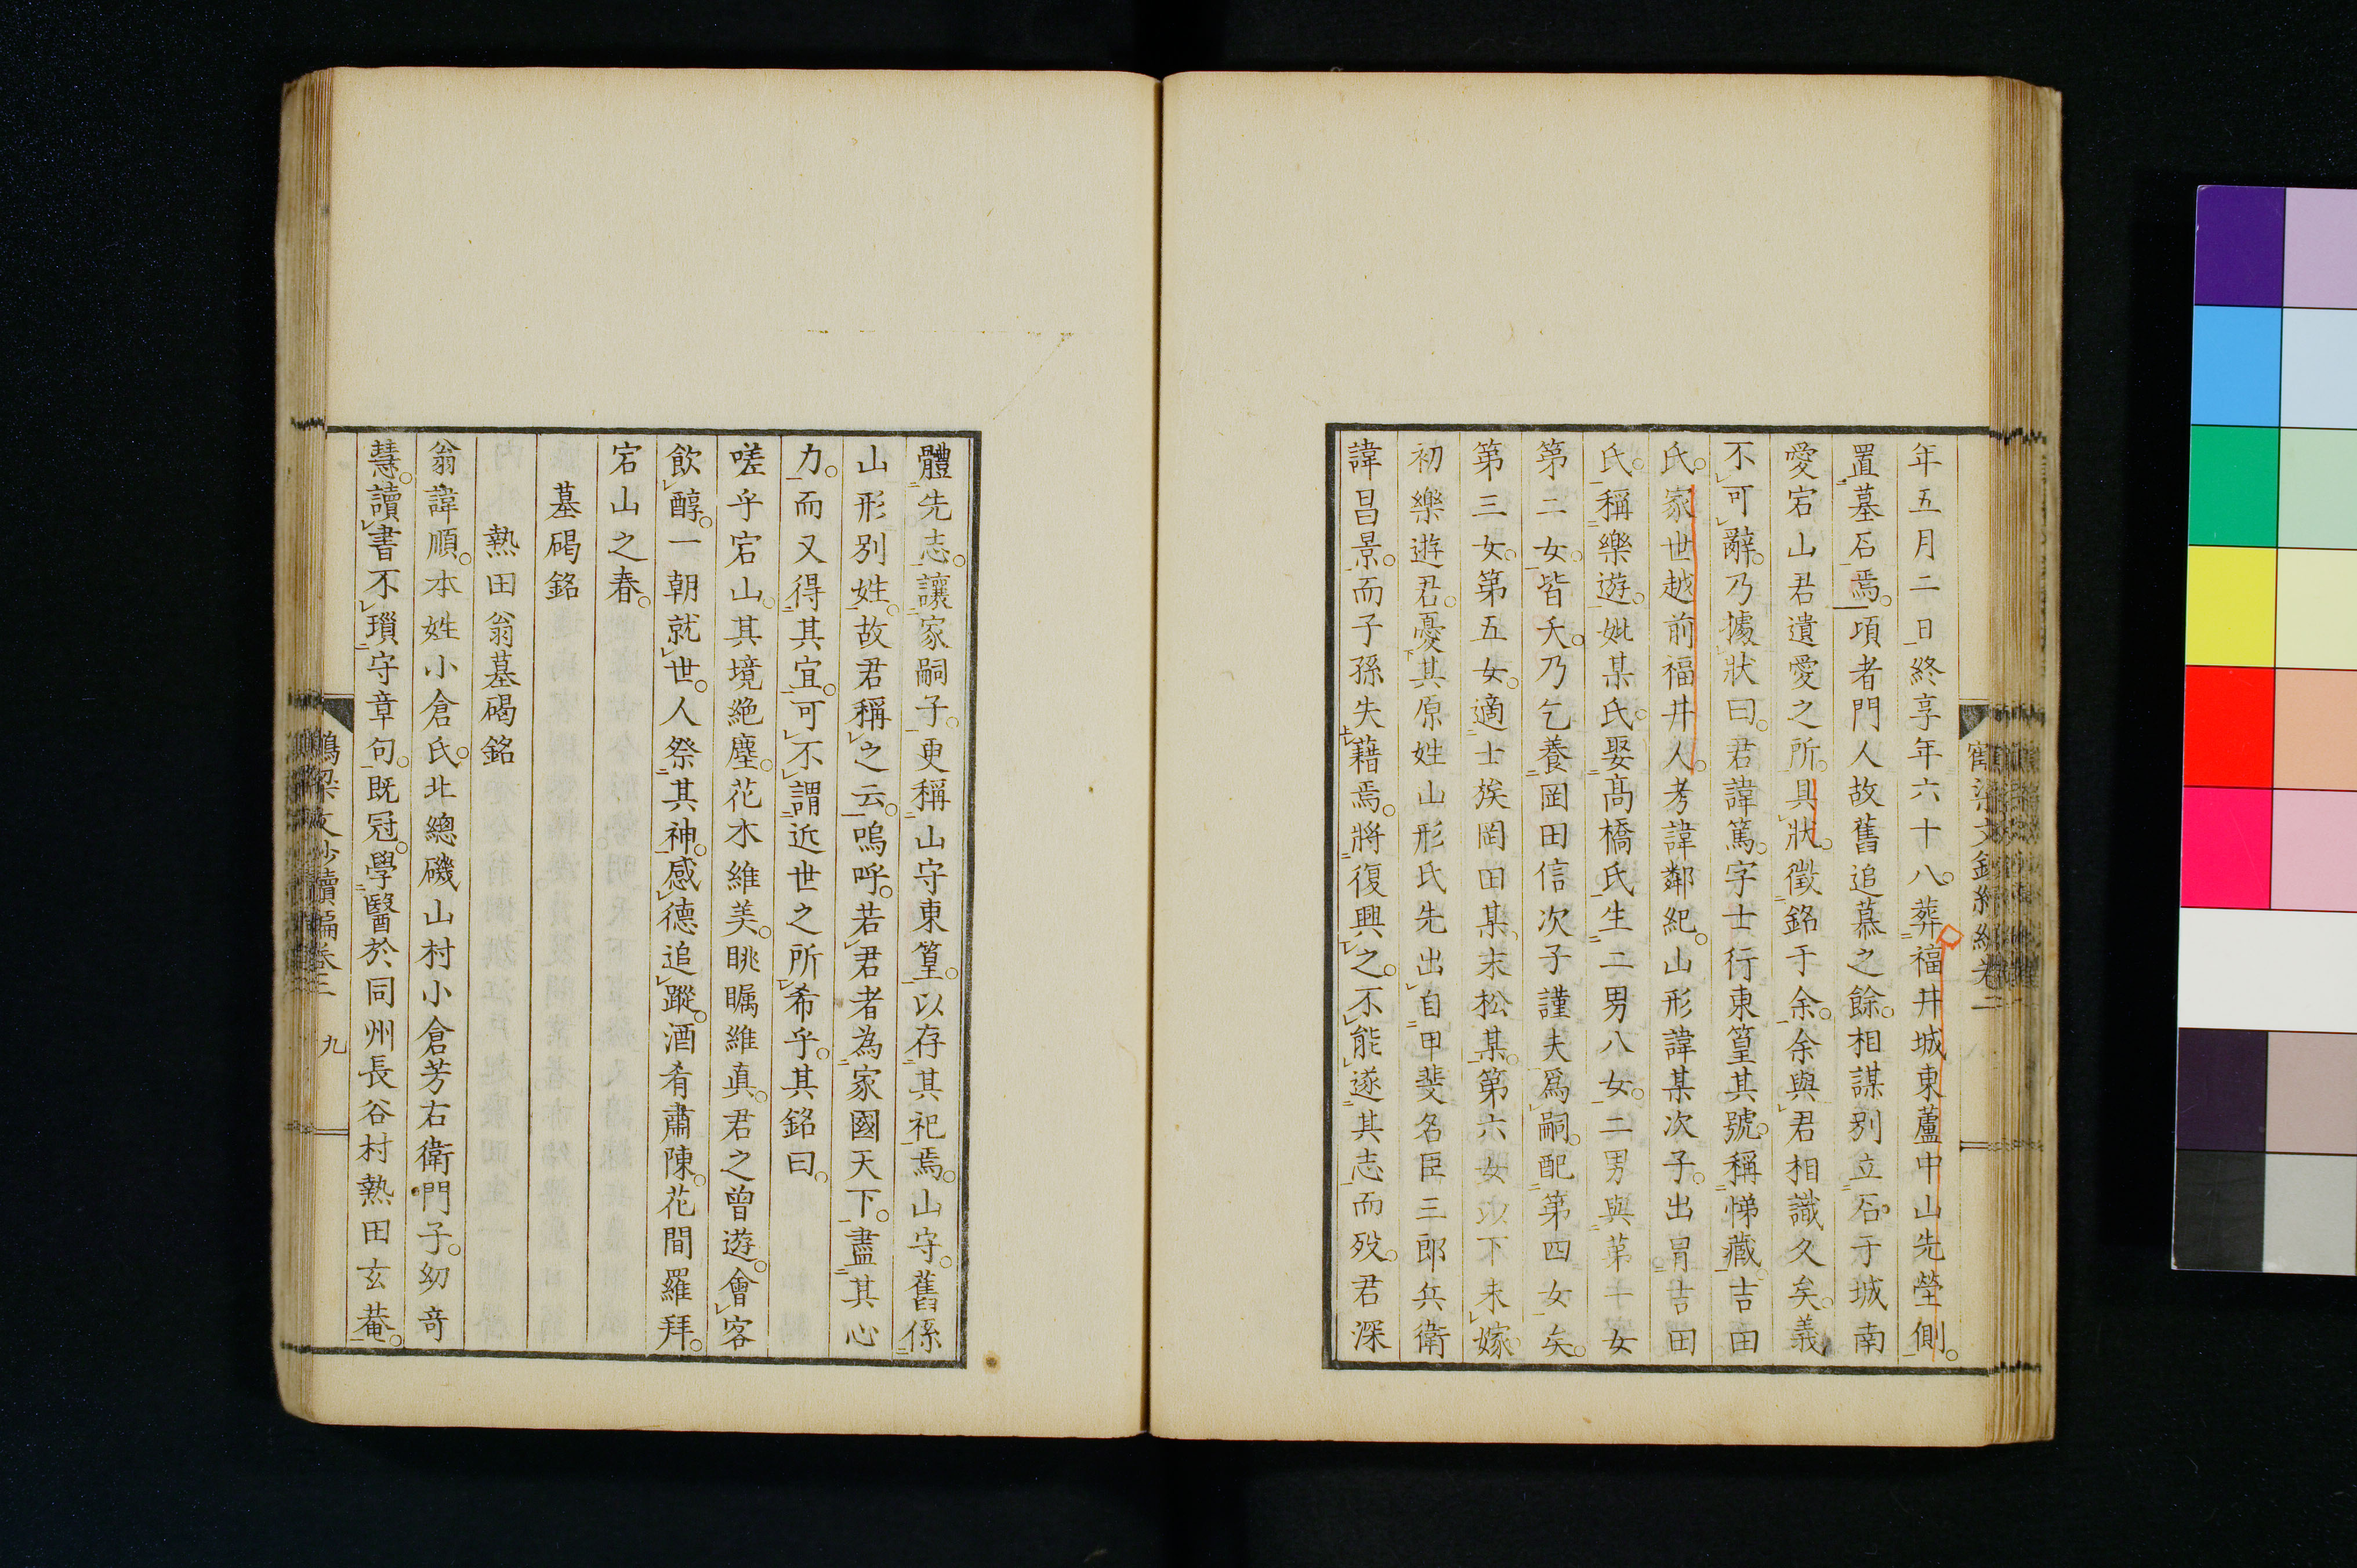 年五月二日終享年六十八。葬福井城東蘆中山先塋側。
置墓石焉。項者門人故舊追慕之餘。相謀別立石于城南
愛宕山君遺愛之所。具狀。徵銘于余。余與君相識久矣。義
不可辭。乃據狀曰。君諱篤。字士行東篁其號。稱悌藏。吉田
氏。家世越前福井人。考諱鄰紀。山形諱某次子。出冐吉田
氏。稱樂遊。妣某氏。娶髙橋氏。生二男八女。二男與第一女
第二女。皆夭。乃乞養岡田信次子謹夫爲嗣。配第四女矣。
第三女。第五女。適士族岡田某。末松某。第六女以下未嫁。
初樂遊君。憂其原姓山形氏先出自甲斐名臣三郎兵衛
諱昌景。而子孫失藉焉。將復興之。不能遂其志而歿。君深
體先志。讓家嗣子。更稱山守東篁。以存其祀焉。山守。舊係
山形別姓。故君稱之云。嗚呼。若君者為家國天下。盡其心
力。而又得其宜。可不謂近世之所希乎。其銘曰。
嗟乎宕山。其境絶塵。花木維美。眺矚維真。君之曾遊。會客
飲醇。一朝就世。人祭其神。感德追蹤。酒肴肅陳。花間羅拜。
宕山之春。
墓碣銘
熱田翁墓碣銘
翁諱順。本姓小倉氏。北總磯山村小倉芳右衛門子。幼奇
慧。讀書不瑣守章句。既冠。學醫於同州長谷村熱田玄菴。
文鈔續編卷二 九